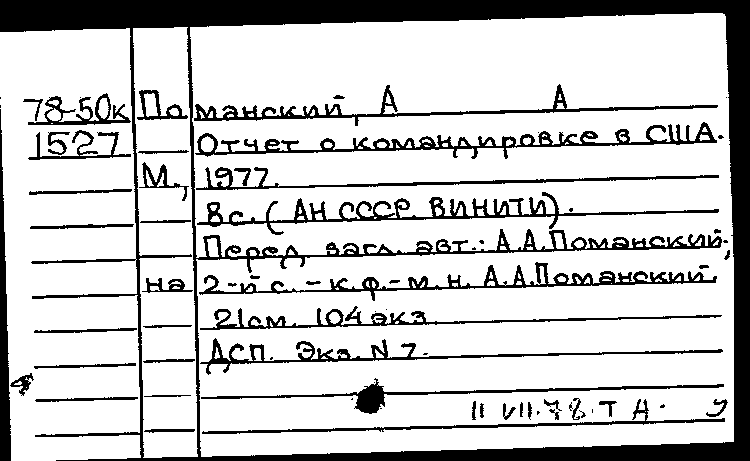 78-50к Поманский, А А
1527 Отчет о командировке в США.
М., 1977.
8с. (АН СССР. ВИНИТИ).
Перед загл. авт.: А.А.Поманский;
на 2-й с. – к.ф.-м.н. А.А.Поманский.
21см. 104 экз.
ДСП. Экз. N 7.
11 VII.78. Т А.